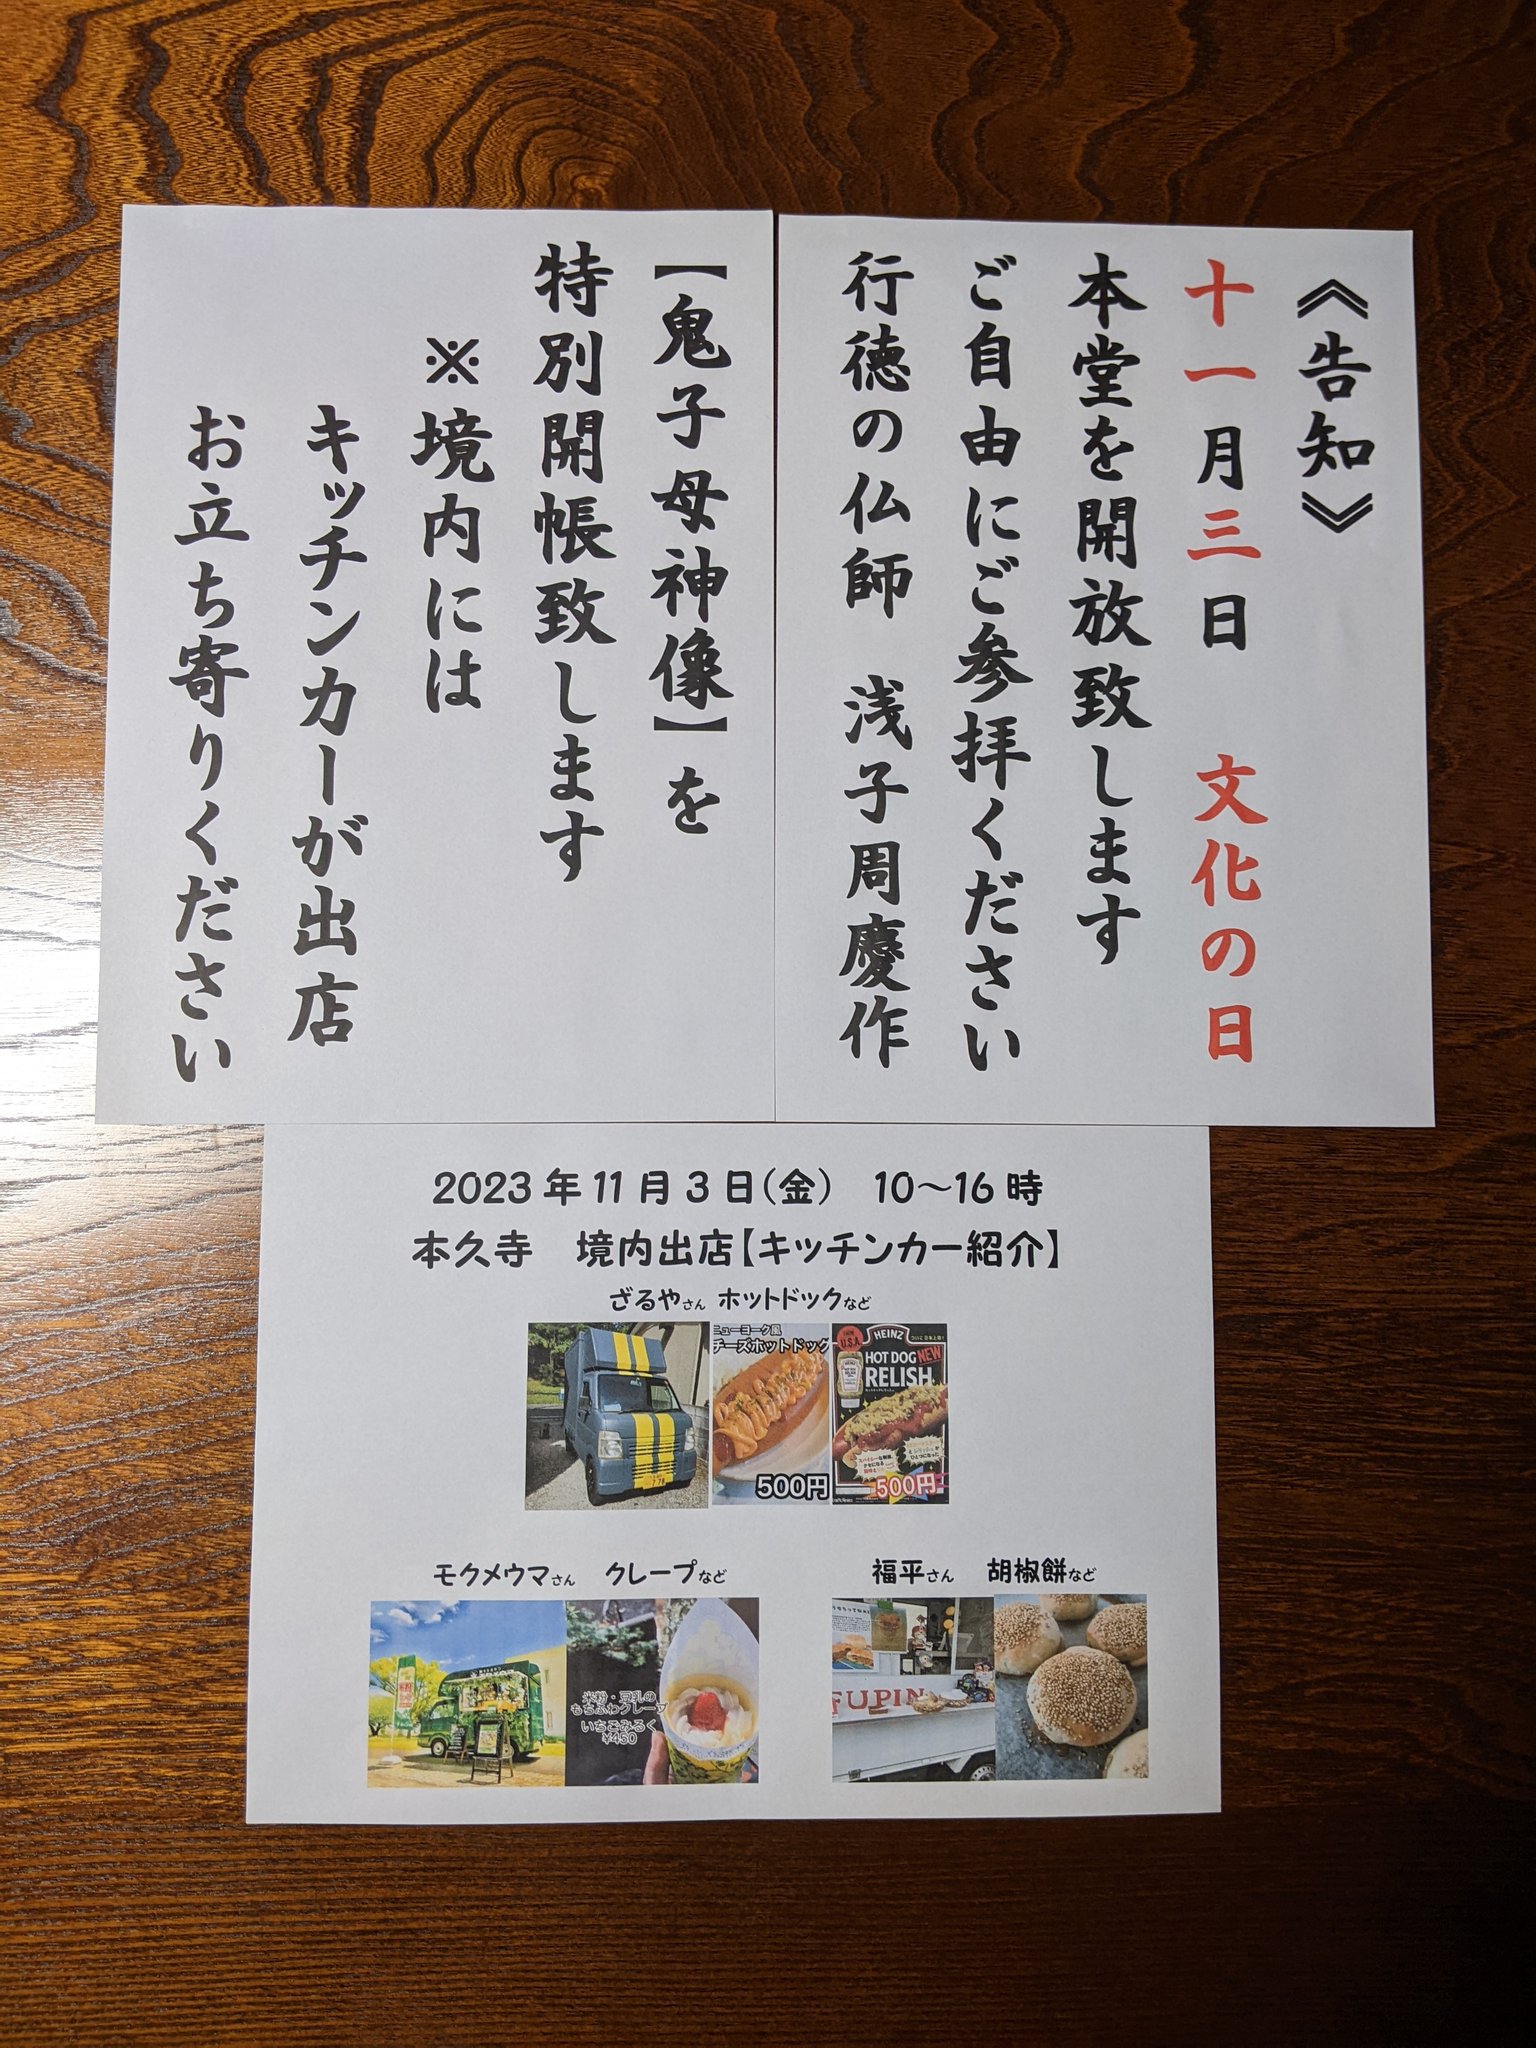 《告知》
十一月三日 文化の日
本堂を開放致します
ご自由にご参拝ください
行徳の仏師 浅子周慶作
【鬼子母神像】を
特別開帳致します
※境内には
キッチンカーが出店
お立ち寄りください
2023年11月3日(金) 10～16時
本久寺 境内出店【キッチンカー紹介】
ざるやさん ホットドックなど
ニューヨーク風
チーズホットドッグ
500円
FROM U.S.A
HEINZ
ついに日本上陸!
HOT DOG NEW
RELISH
500円
モクメウマさん クレープなど
米粉・豆乳の
もちふわクレープ
いちごみるく
¥450
福平さん 胡椒餅など
FUPIN